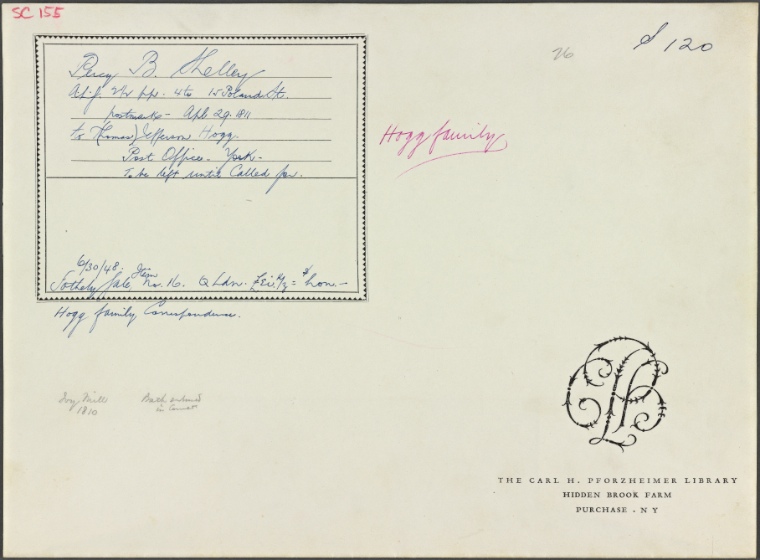 SC 155
26
$ 120
Percy B. Shelley
4to 15 Poland St.
postmark - Apl. 29. 1811
to Thomas Jefferson Hogg
Post Office - York -
To be left until Called for.
Hogg family
6/30/48. Item
Sotheby Sale, No. 16. Q Ldn.
Hogg family Correspondence.
Ivy Mill
1810
THE CARL H. PFORZHEIMER LIBRARY
HIDDEN BROOK FARM
PURCHASE . N Y